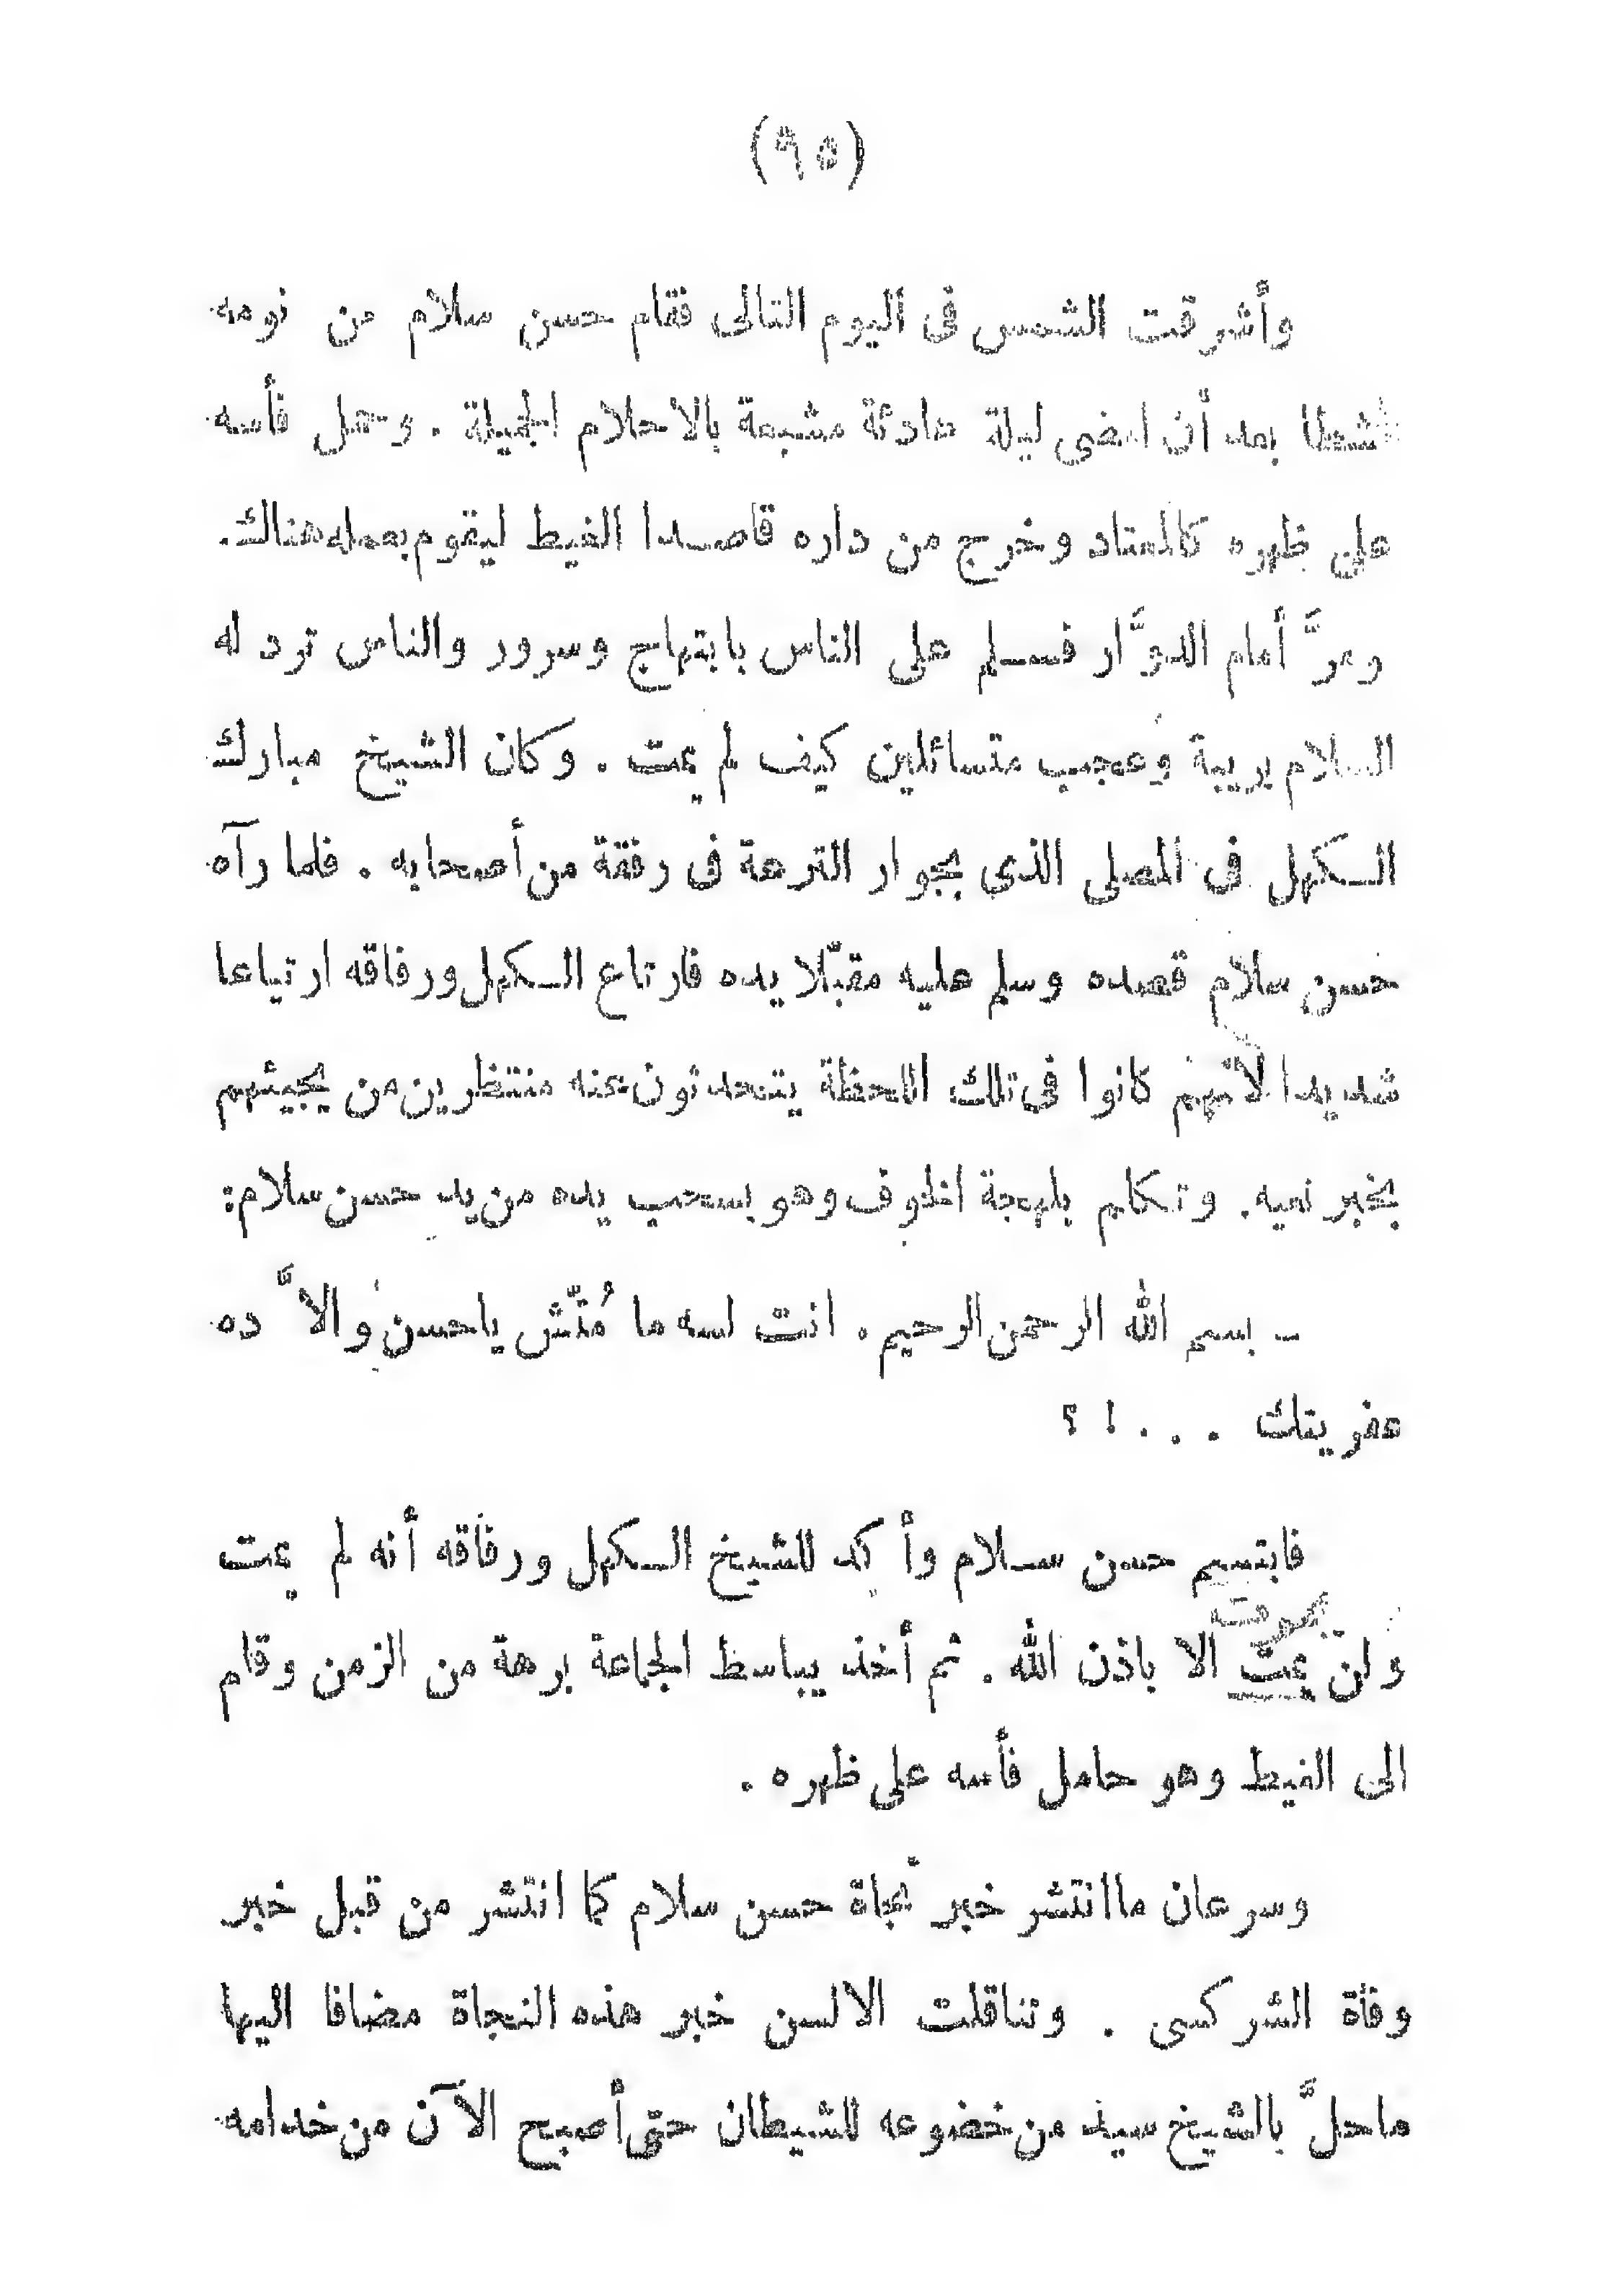 (٩٥)
وأشرقت الشمس فى اليوم التالى فقام حسن سلام من نومه
نشطا بعد أن امضى ليلة هادئة مشبعة بالاحلام الجميلة . وحمل فأسه
على ظهره كالمعتاد وخرج من داره قاصدا الغيط ليقوم بعمله هناك.
ومرَّ أمام الدوَّار فسلم على الناس بابتهاج وسرور والناس ترد له
السلام بريبة وعجب متسائلين كيف لم يمت . وكان الشيخ مبارك
الكهل فى المصلى الذى بجوار الترعة فى رفقة من أصحابه . فلما رآه
حسن سلام قصده وسلم عليه مقبّلا يده فارتاع الكهل ورفاقه ارتياعا
شديدا لأنهم كانوا فى تلك اللحظة يتحدثون عنه منتظرين من يجيئهم
بخبر نعيه. وتكلم بلهجة الخوف وهو يسحب يده من يد حسن سلام:
- بسم الله الرحمن الرحيم . انت لسه ما مُتّش ياحسن والاَّ ده
عفريتك . . . ! ؟
فابتسم حسن سلام وأكد للشيخ الكهل ورفاقه أنه لم يمت
يموت
ولن يمت الا باذن الله . ثم أخذ يباسط الجماعة برهة من الزمن وقام
الى الغيط وهو حامل فأسه على ظهره .
وسرعان ماانتشر خبر نجاة حسن سلام كما انتشر من قبل خبر
وفاة الشركسى . وتناقلت الالسن خبر هذه النجاة مضافا اليها
ماحلَّ بالشيخ سيد من خضوعه للشيطان حتى أصبح الآن من خدامه